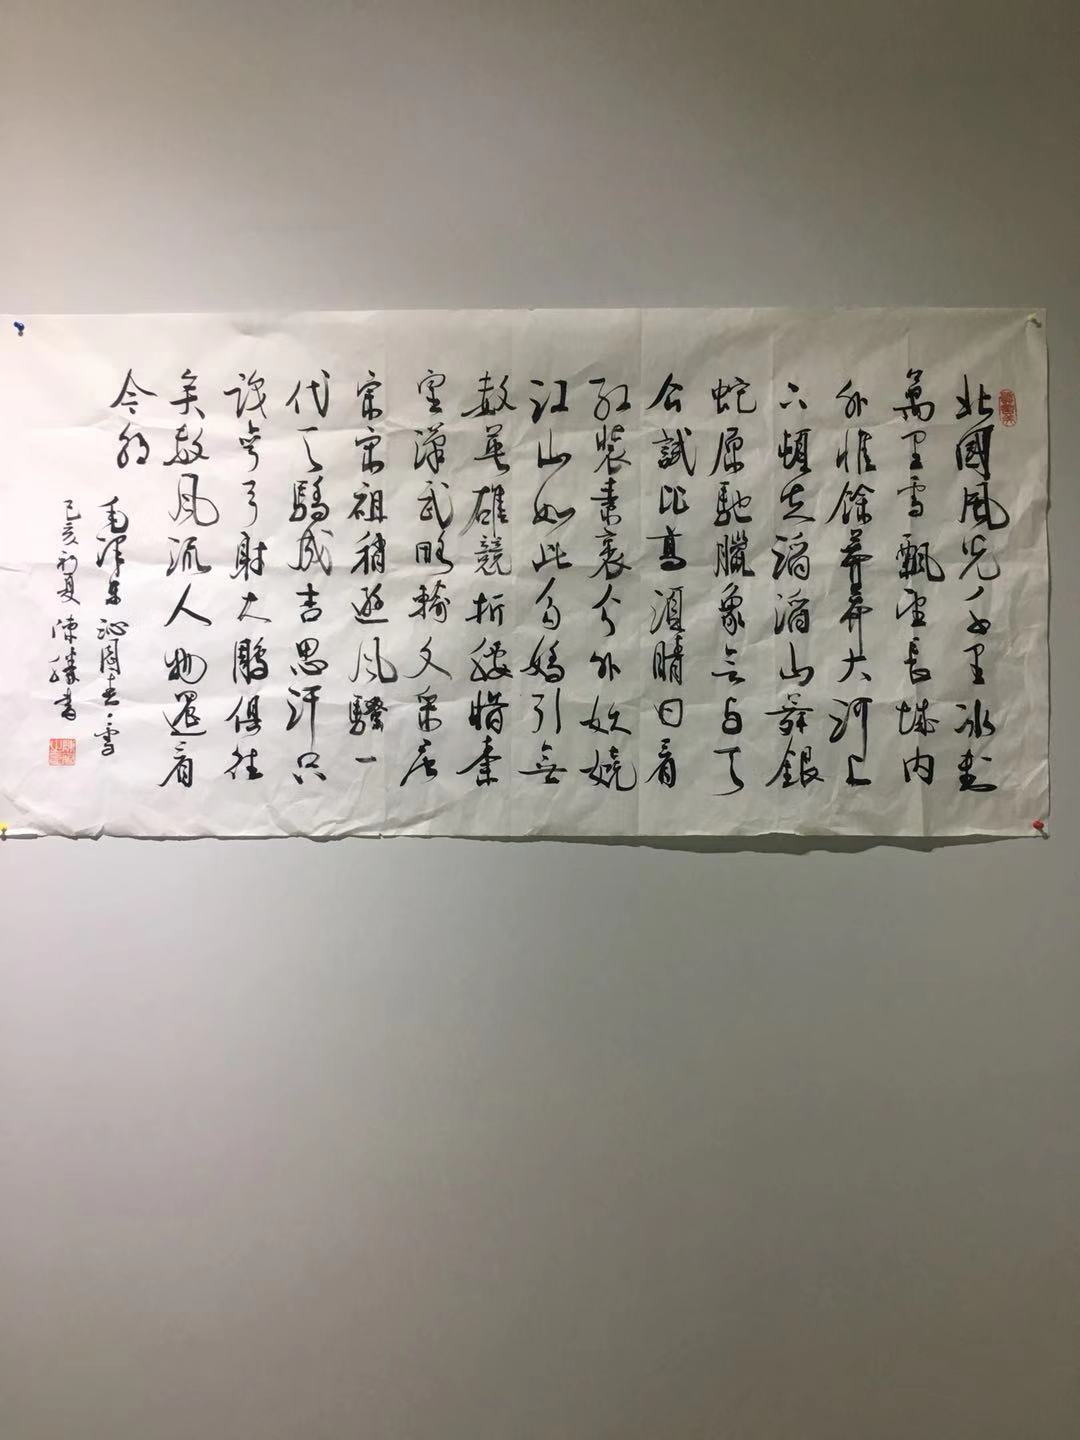 北國風光千里冰封
萬里雪飄望長城內
外惟餘莽莽大河上
下頓失滔滔山舞銀
蛇原馳臘象欲与天
公試比高須晴日看
紅裝素裹分外妖嬈
江山如此多嬌引無
數英雄競折腰惜秦
皇漢武略輸文采唐
宗宋祖稍遜風騷一
代天驕成吉思汗只
識彎弓射大雕俱往
矣數風流人物還看
今朝
毛澤東沁園春雪
己亥初夏陳書